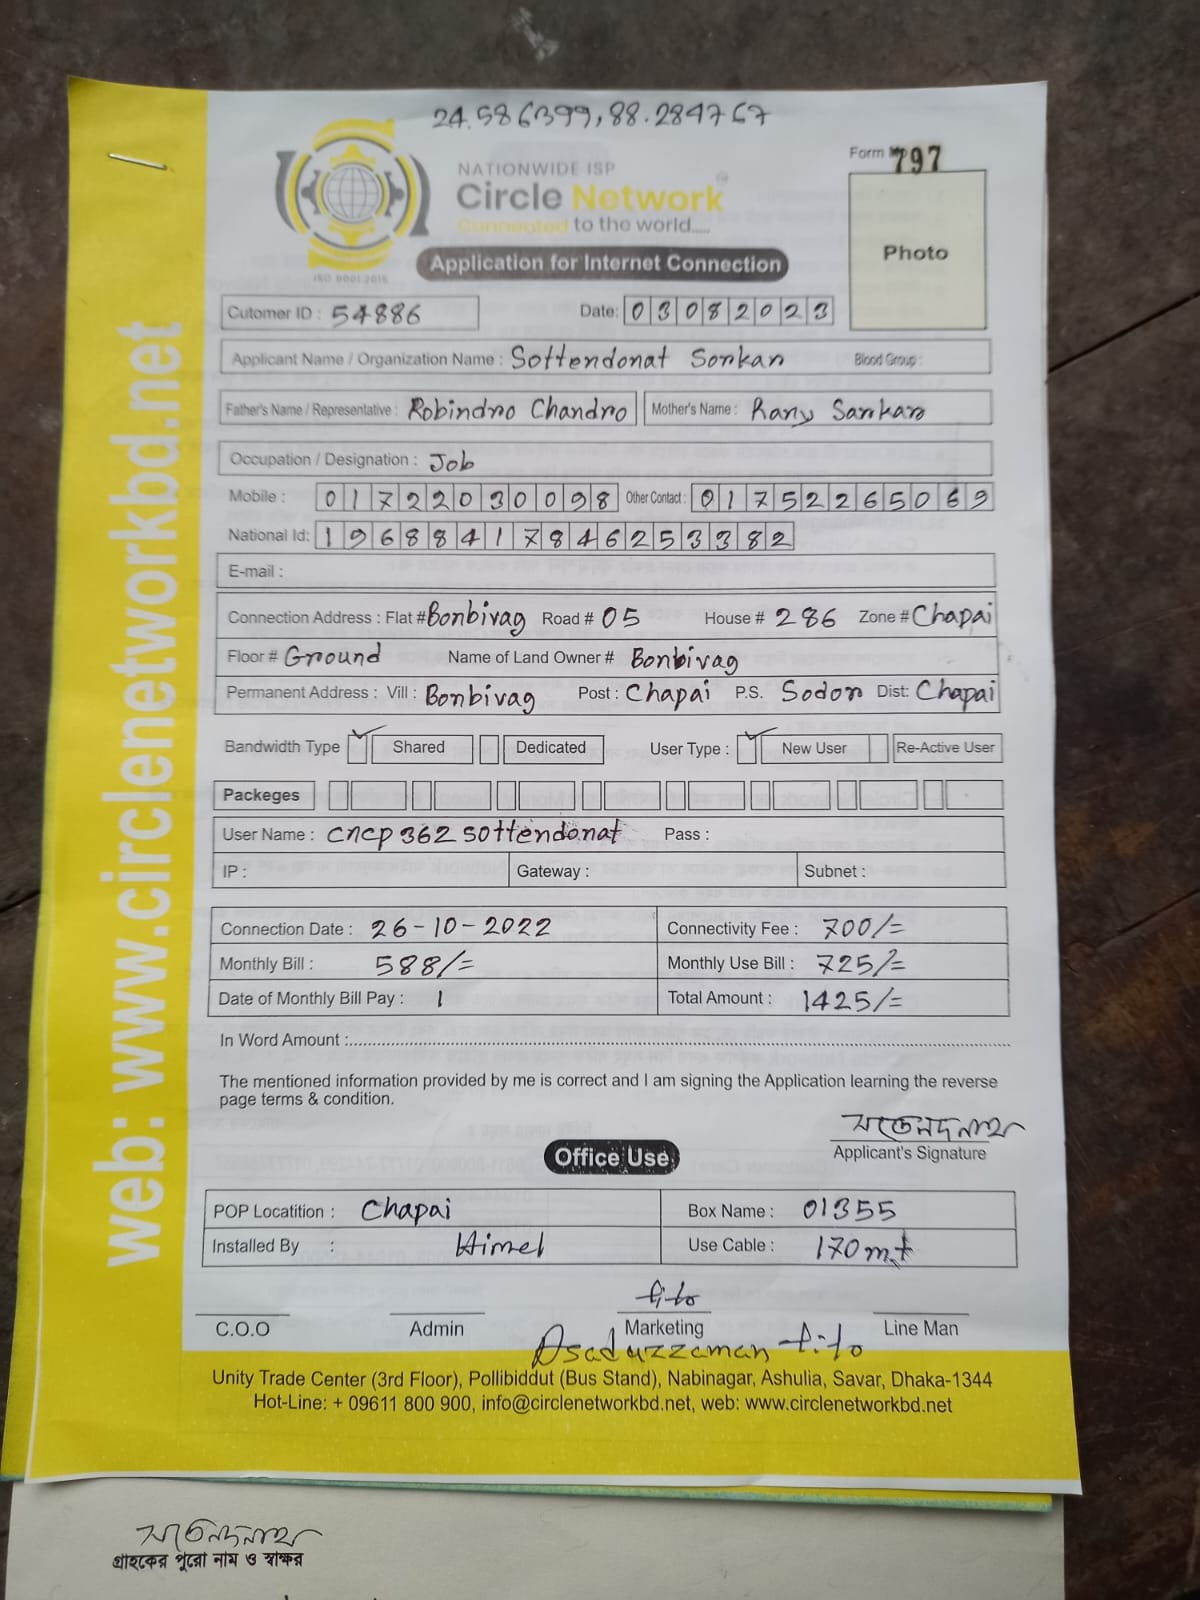 24.586399,88.284767
Form No 797
NATIONWIDE ISP
Circle Network
Connected to the world.....
ISO 9001:2015
Application for Internet Connection
Photo
Cutomer ID : 54886 Date: 03082023
Applicant Name / Organization Name : Sottendonat Sonkar Blood Group :
Father's Name / Representative : Robindro Chandro Mother's Name : Rany Sarkar
Occupation / Designation : Job
Mobile : 01722030098 Other Contact : 01752265069
National Id: 19688417846253382
E-mail :
Connection Address : Flat # Bonbivag Road # 05 House # 286 Zone # Chapai
Floor # Ground Name of Land Owner # Bonbivag
Permanent Address : Vill : Bonbivag Post : Chapai P.S. Sodor Dist: Chapai
Bandwidth Type Shared Dedicated User Type : New User Re-Active User
Packeges
User Name : cncp362sottendonat Pass :
IP : Gateway : Subnet :
Connection Date : 26-10-2022 Connectivity Fee : 700/=
Monthly Bill : 588/= Monthly Use Bill : 725/=
Date of Monthly Bill Pay : 1 Total Amount : 1425/=
In Word Amount :
The mentioned information provided by me is correct and I am signing the Application learning the reverse
page terms & condition.
Applicant's Signature
Office Use
POP Locatition : Chapai Box Name : 01355
Installed By : Himel Use Cable : 170 mt
tito
C.O.O Admin Marketing Line Man
Asaduzzaman tito
Unity Trade Center (3rd Floor), Pollibiddut (Bus Stand), Nabinagar, Ashulia, Savar, Dhaka-1344
Hot-Line: + 09611 800 900, info@circlenetworkbd.net, web: www.circlenetworkbd.net
web: www.circlenetworkbd.net
গ্রাহকের পুরো নাম ও স্বাক্ষর